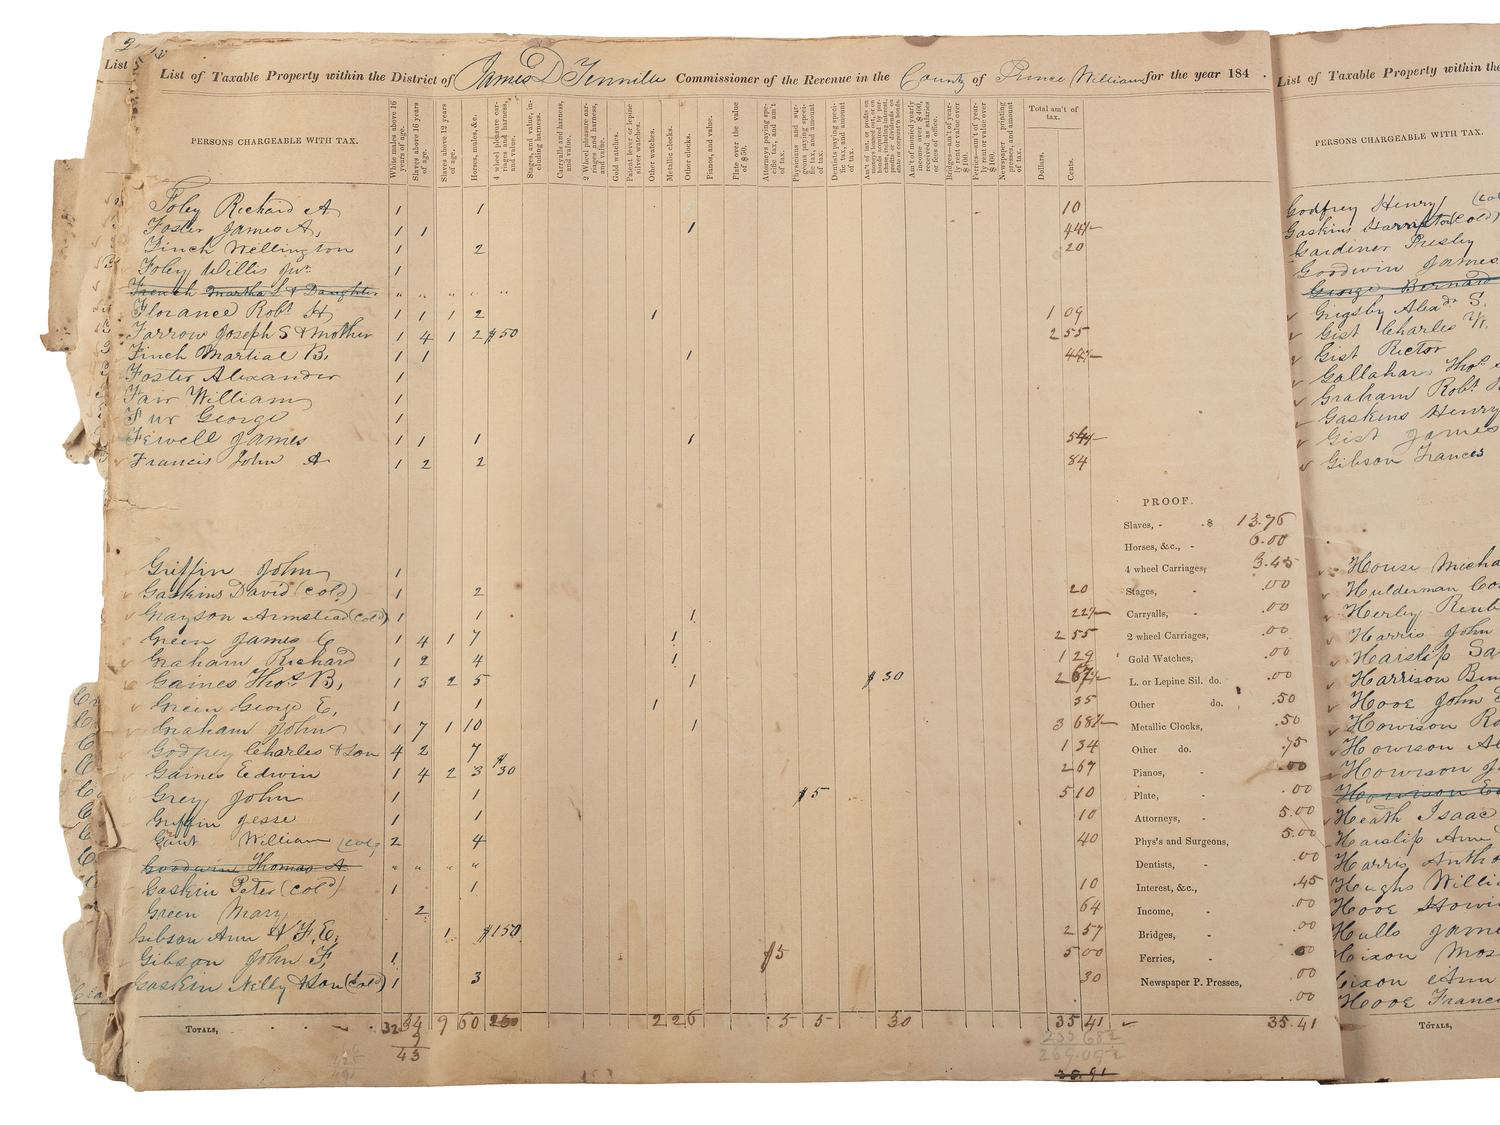 2
List
List of Taxable Property within the District of James D Tennille Commissioner of the Revenue in the County of Prince William for the year 184 .
PERSONS CHARGEABLE WITH TAX.
White males above 16 years of age.
Slaves above 16 years of age.
Slaves above 12 years of age.
Horses, mules, &c.
4 wheel pleasure carriages and harness, and value.
Stages, and value, including harness.
Carryalls and harness, and value.
2 Wheel pleasure carriages and harness, and value.
Gold watches.
Patent lever or lepine silver watches.
Other watches.
Metallic clocks.
Other clocks.
Pianos, and value.
Plate over the value of $50.
Attorneys paying specific tax, and am't of tax.
Physicians and surgeons paying specific tax, and amount of tax.
Dentists paying specific tax, and amount of tax.
Bridges—am't of yearly rent or value over $100.
Ferries—am't of yearly rent or value over $100.
Newspaper printing presses, and amount of tax.
Total am't of tax.
Dollars.
Cents.
Foley Richard A 1 1 10
Foster James A, 1 1 1 44½
Finch Wellington 1 2 20
Foley Willis Jur. 1
French Martha S & Daughter " " " " "
Florance Robt H 1 1 1 2 1 1 09
Farrow Joseph S & Mother 1 4 1 2 $50 2 55
Finch Martial B, 1 1 1 44½
Foster Alexander 1
Fair William 1
Fur George 1
Fewell James 1 1 1 1 54½
Francis John A 1 2 2 84
Griffin John 1
Gaskins David (Cold) 1 2 20
Grayson Armstead (Cold) 1 1 1 22½
Green James E 1 4 1 7 1 2 55
Graham Richard 1 2 4 1 1 29
Gaines Thos. B, 1 3 2 5 1 $30 2 67½
Green George E, 1 1 1 35
Graham John 1 7 1 10 1 3 68½
Godfrey Charles & Son 4 2 7 1 34
Gaines Edwin 1 4 2 3 $30 2 67
Grey John 1 1 $5 5 10
Griffin Jesse 1 1 10
Gant William (Cold) 2 4 40
Goodwin Thomas A. " " " "
Gaskin Peter (Cold) 1 1 10
Green Mary 2 64
Gibson Ann & F, E, 1 $150 2 57
Gibson John F, 1 $5 5 00
Gaskin Nelly & Son (Cold) 1 3 30
TOTALS, 32 34 9 60 260 2 2 6 5 5 30 35 41 35.41
9
43
PROOF.
Slaves, - - $ 13.76
Horses, &c., - 6.00
4 wheel Carriages, 3.45
Stages, - .00
Carryalls, - .00
2 wheel Carriages, .00
Gold Watches, .00
L. or Lepine Sil. do. .00
Other do. .50
Metallic Clocks, .50
Other do. .75
Pianos, - .00
Plate, - .00
Attorneys, - 5.00
Phys's and Surgeons, 5.00
Dentists, - .00
Interest, &c., - .45
Income, - .00
Bridges, - .00
Ferries, - .00
Newspaper P. Presses, .00
.00
List of Taxable Property within the
PERSONS CHARGEABLE WITH TAX.
Godfrey Henry (Col
Gaskins Harrington (Cold)
Gardiner Presley
Goodwin James
George Bernard
Grigsby Alexdr S.
Gist Charles W.
Gist Rector
Gallahar Thos.
Graham Robt
Gaskins Henry
Gist James
Gibson Frances
House Micha
Hulderman
Herley Reub
Harris John
Haislip Sa
Harrison
Hooe John
Howison Ro
Howison Al
Howison J
Howison
Heath Isaac
Haislip Ann
Harris Antho
Hughs Willi
Hooe Howi
Hulls Jame
Hixon Mos
Hixon Ann
Hooe Franc
TOTALS,